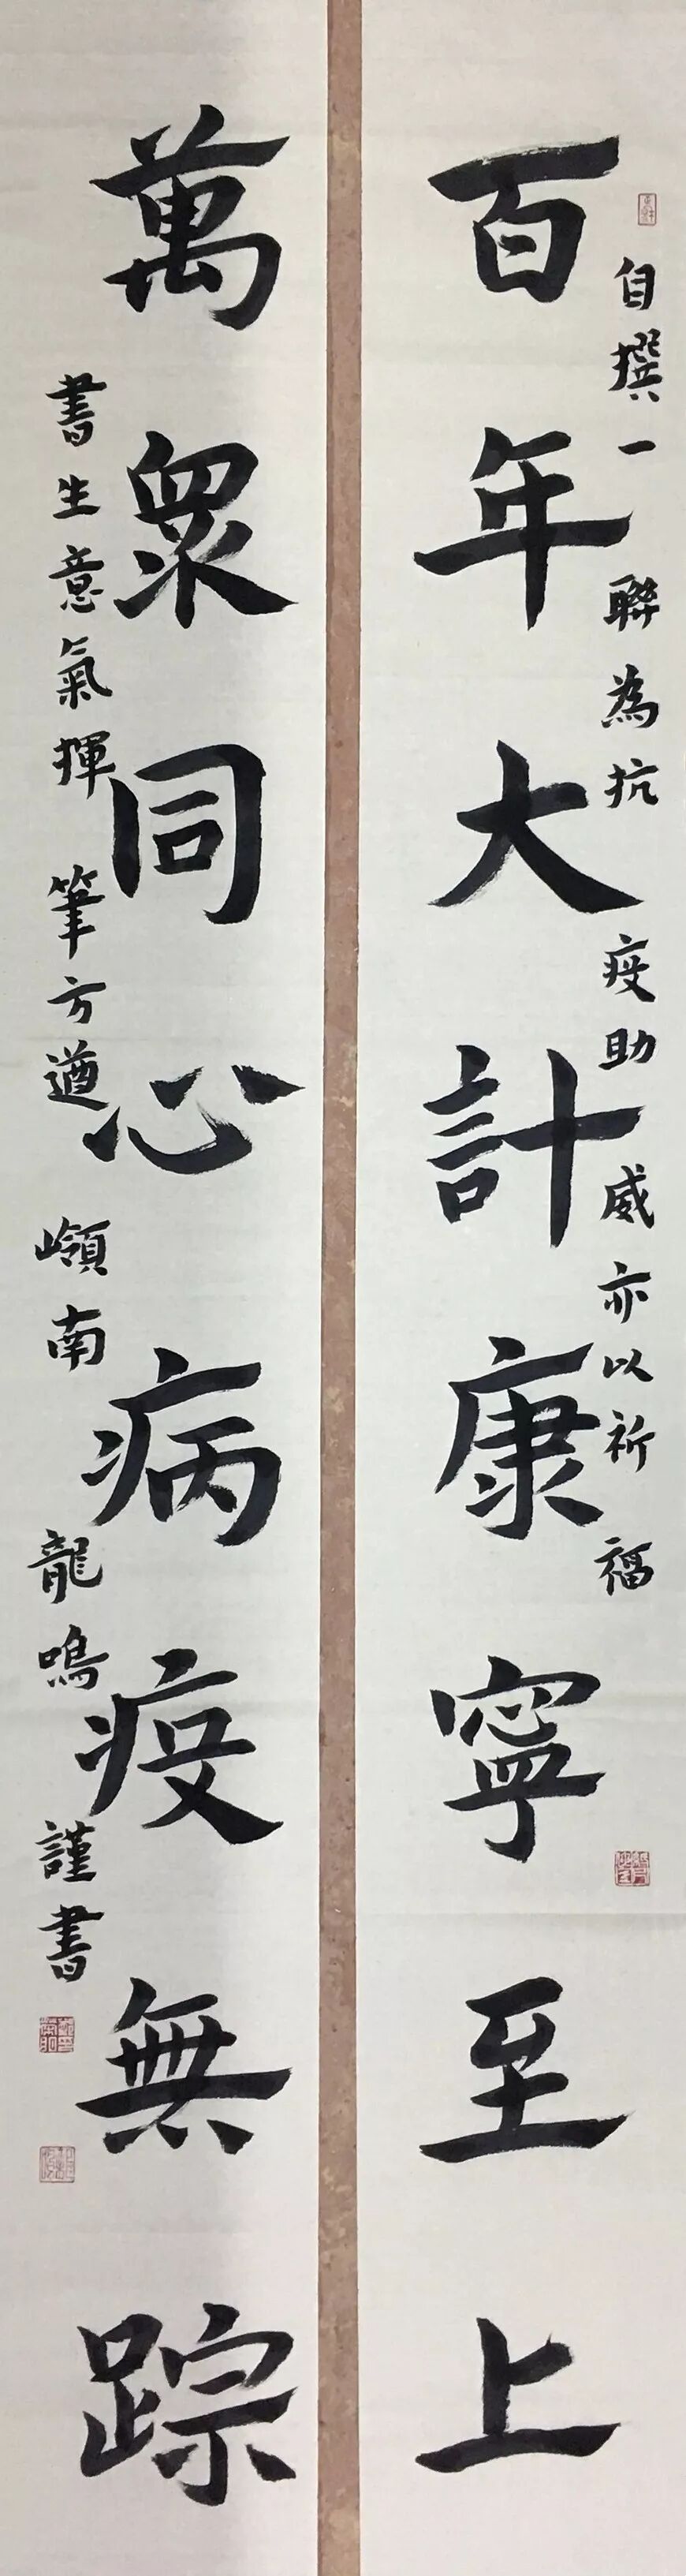 自撰一聯為抗疫助威亦以祈福
百年大計康寧至上
萬衆同心病疫無踪
書生意氣揮筆方遒嶺南龍鳴謹書